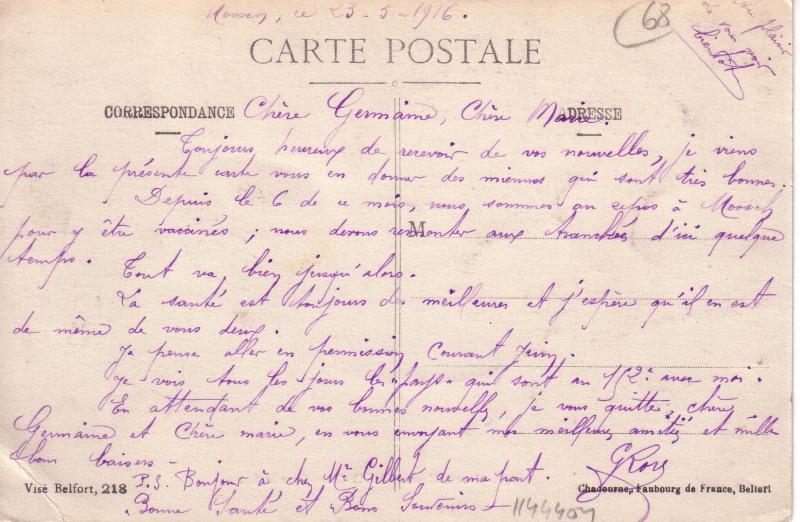 Moosch, le 23-5-1916.
68
Au plaisir
de vous voir
bientôt
CARTE POSTALE
CORRESPONDANCE
ADRESSE
Chère Germaine, Chère Marie.
Toujours heureux de recevoir de vos nouvelles, je viens
par la présente carte vous en donner des miennes qui sont très bonnes.
Depuis le 6 de ce mois, nous sommes au repos à Moosch
M
pour y être vaccinés ; nous devons remonter aux tranchées d'ici quelque
temps. Tout va bien jusqu'alors.
La santé est toujours des meilleures et j'espère qu'il en est
de même de vous deux.
Je pense aller en permission courant Juin.
Je vois tous les jours les "pays" qui sont au 152e avec moi.
En attendant de vos bonnes nouvelles, je vous quitte, chère
Germaine et Chère marie, en vous envoyant mes meilleures amitiés et mille
bons baisers -
P.S. Bonjour à chez Mr Gilbert de ma part.
Bonne Santé et Bons Souvenirs -
1144404
Visé Belfort, 218
Chadourne, Faubourg de France, Belfort